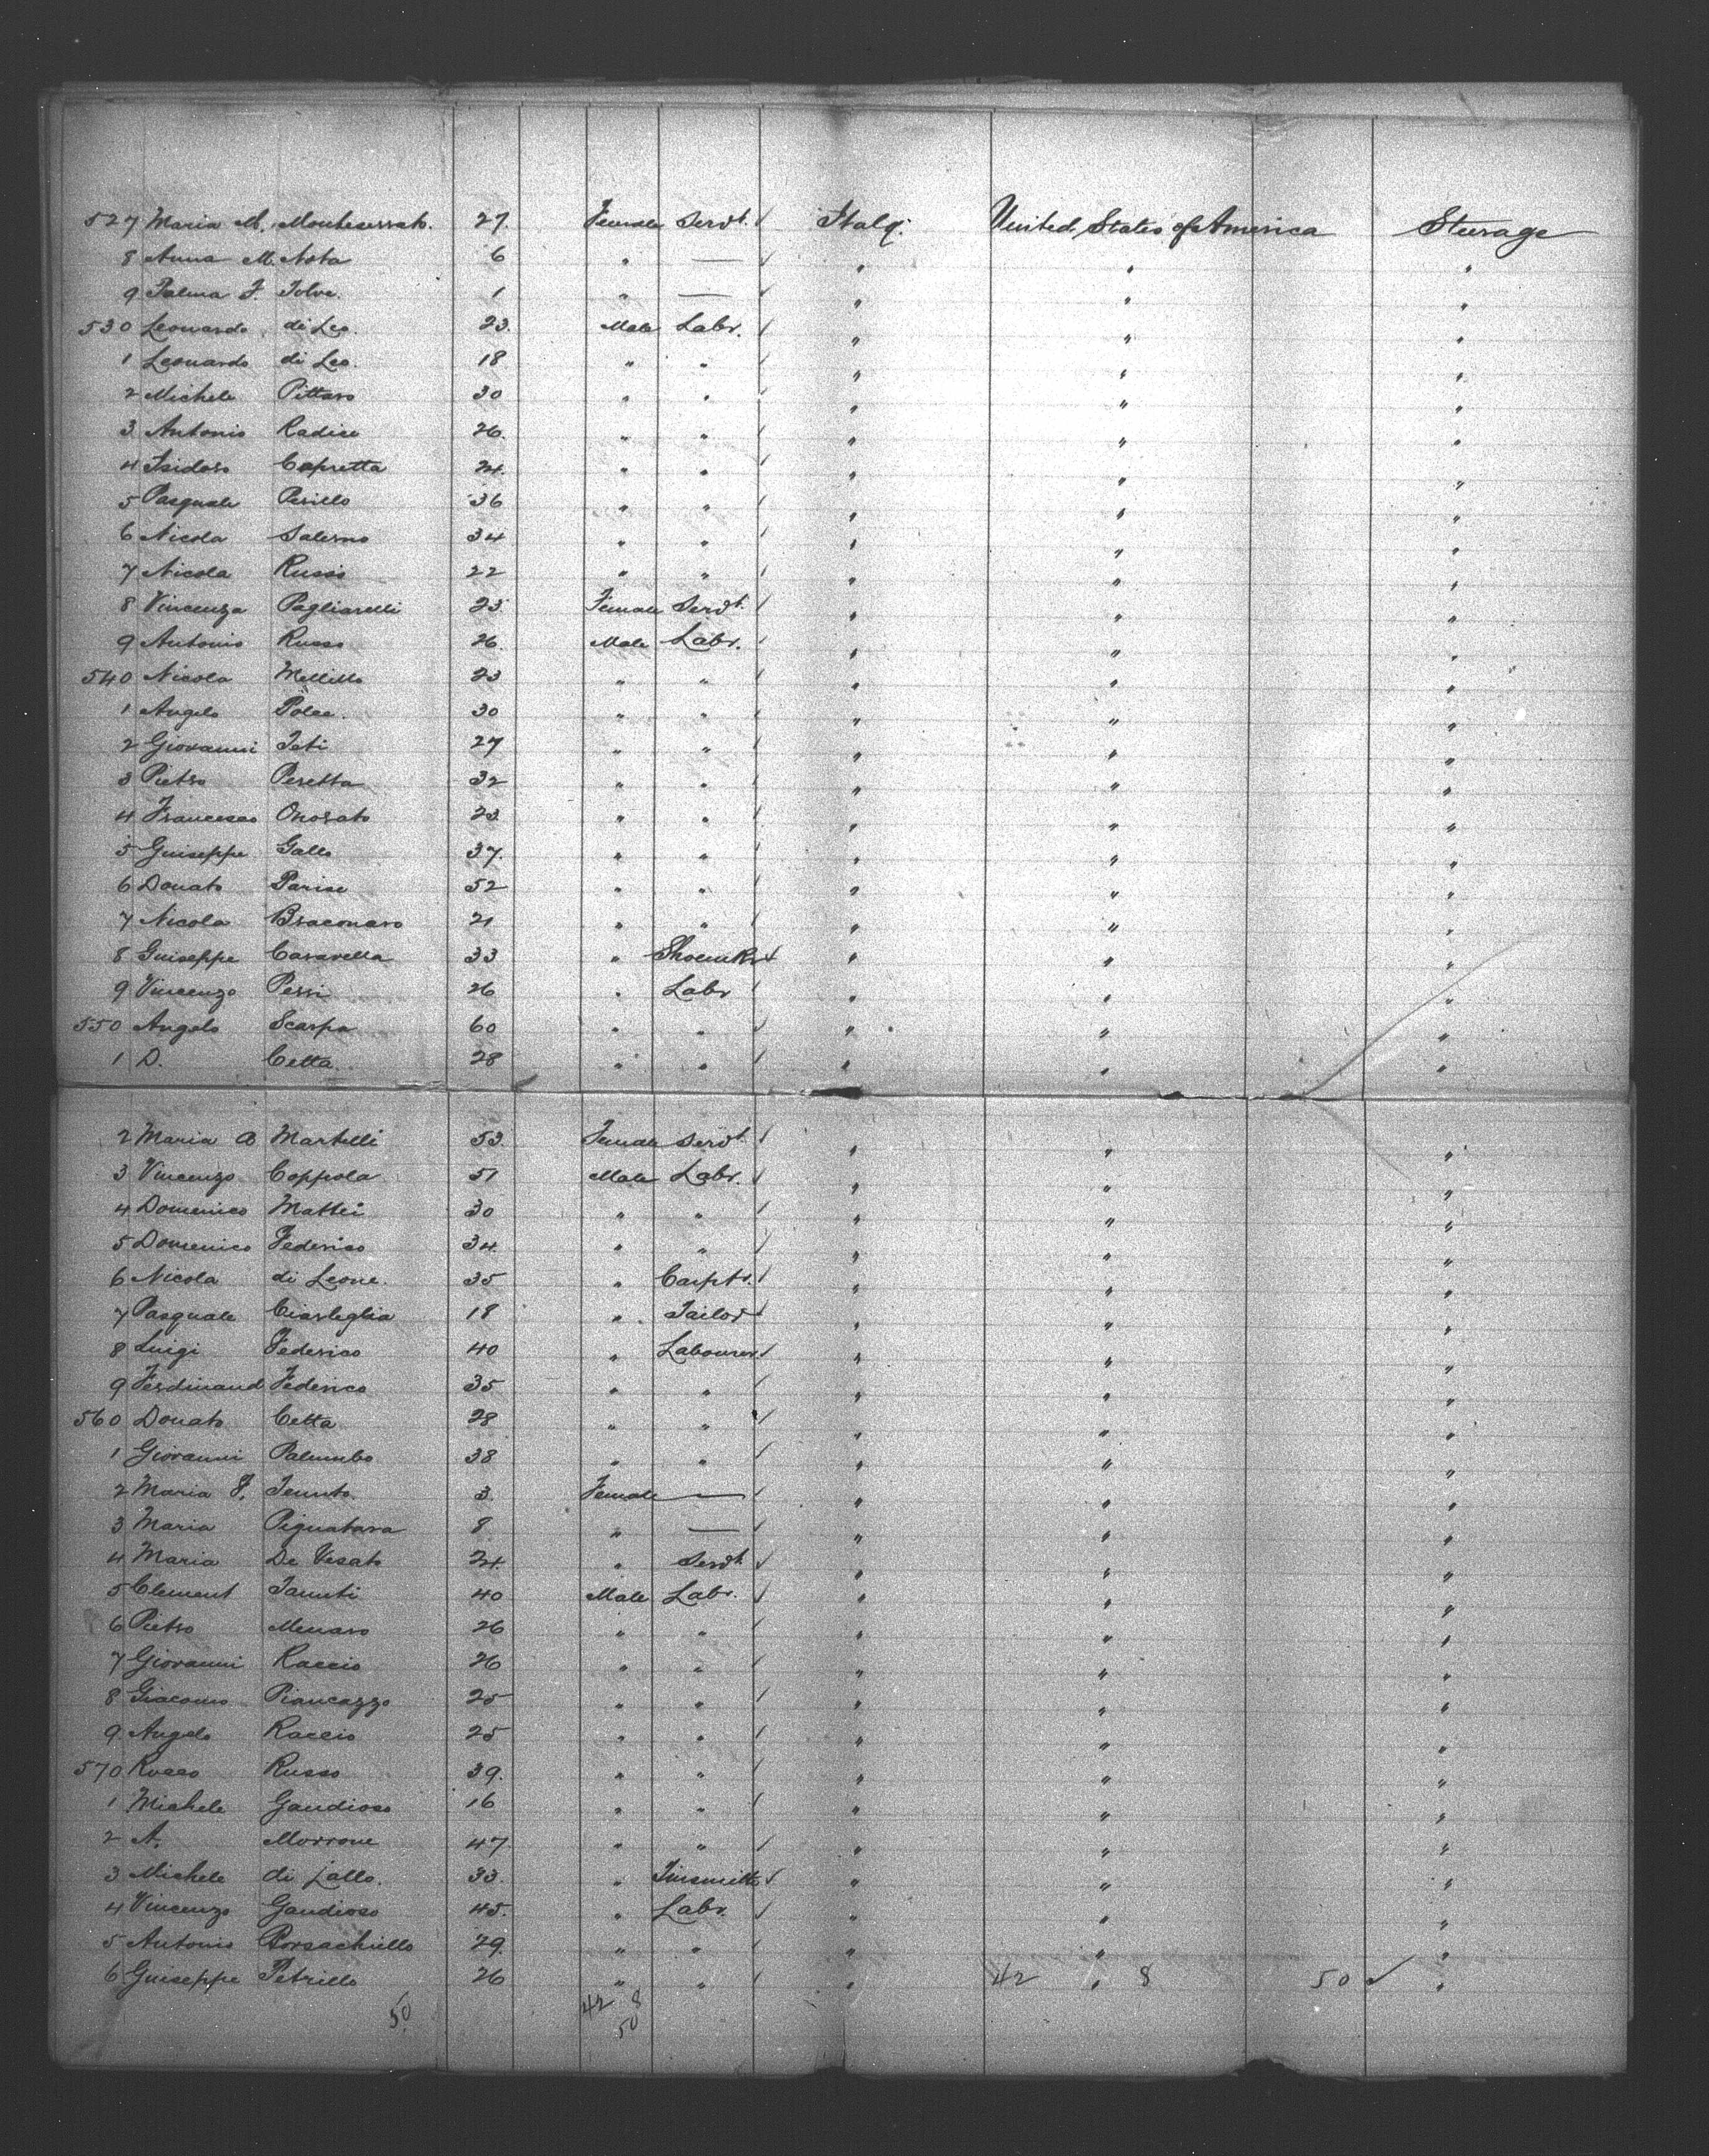 527 Maria M. Monteserrato. 27. Female Servt. ✓ Italy. United States of America Steerage
8 Anna M. Asta 6 " — ✓ " " "
9 Palma F. Tolve. 1 " — ✓ " " "
530 Leonardo di Leo. 23. Male Labr. / " " "
1 Leonardo di Leo. 18 " " / " " "
2 Michele Pittaro 30 " " / " " "
3 Antonio Radice 26. " " / " " "
4 Isidoro Capretta 24. " " / " " "
5 Pasquale Perillo 36 " " / " " "
6 Nicola Salerno 34 " " / " " "
7 Nicola Russo 22 " " / " " "
8 Vincenza Pagliarelli 23 Female Servt. / " " "
9 Antonio Russo 26. Male Labr. / " " "
540 Nicola Mellillo 23 " " / " " "
1 Angelo Polce. 30 " " / " " "
2 Giovanni Teti 27 " " / " " "
3 Pietro Peretta 32 " " / " " "
4 Francesco Onorato 23. " " / " " "
5 Guiseppe Gallo 37. " " / " " "
6 Donato Parise 52 " " / " " "
7 Nicola Braconaro 21 " " / " " "
8 Guiseppe Caravella 33 " Shoemkr ✓ " " "
9 Vincenzo Persi 26 " Labr / " " "
550 Angelo Scarpa 60 " " ✓ " " "
1 D. Cetta. 28 " " / " " "
2 Maria A Martelli 53. Female Servt. / " " "
3 Vincenzo Coppola 51 Male Labr. ✓ " " "
4 Domenico Mattei 30 " " / " " "
5 Domenico Federico 34. " " / " " "
6 Nicola di Leone. 35 " Carptr. / " " "
7 Pasquale Ciarleglia 18 " Tailor ✓ " " "
8 Luigi Federico 40 " Labourer. / " " "
9 Ferdinand Federico 35 " " / " " "
560 Donato Cetta 28 " " / " " "
1 Giovanni Palumbo 38 " " / " " "
2 Maria F. 3. Female — / " " "
3 Maria Pignatara 8 " — ✓ " " "
4 Maria De Vesato 24. " Servt. ✓ " " "
5 Clement Iannti 40 Male Labr. ✓ " " "
6 Pietro Menaro 26 " " / " " "
7 Giovanni Raccio 26 " " / " " "
8 Giacomo Piancazzo 25 " " / " " "
9 Angelo Raccio 25 " " / " " "
570 Rocco Russo 39. " " / " " "
1 Michele Gaudioso 16 " " / " " "
2 A. Morrone 47. " " / " " "
3 Michele di Lallo. 33. " Tinsmith ✓ " " "
4 Vincenzo Gaudioso 45. " Labr. ✓ " " "
5 Antonio 29. " " / " " "
6 Guiseppe Petrillo 26 " " / " 42 " 8 50 ✓ "
50 42 8
50